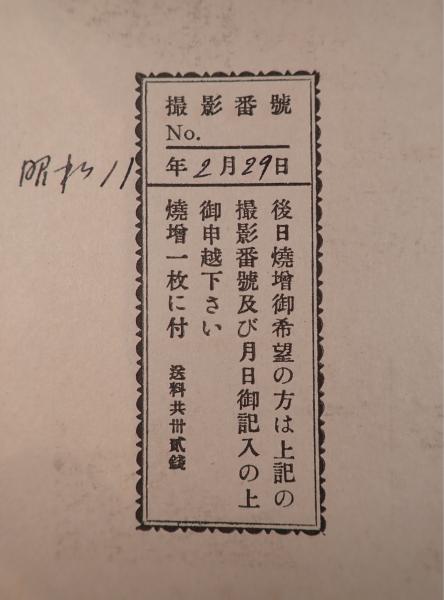 撮影番號
No.
昭和11年2月29日
後日燒增御希望の方は上記の
撮影番號及び月日御記入の上
御申越下さい
燒增一枚に付 送料共卅貳錢